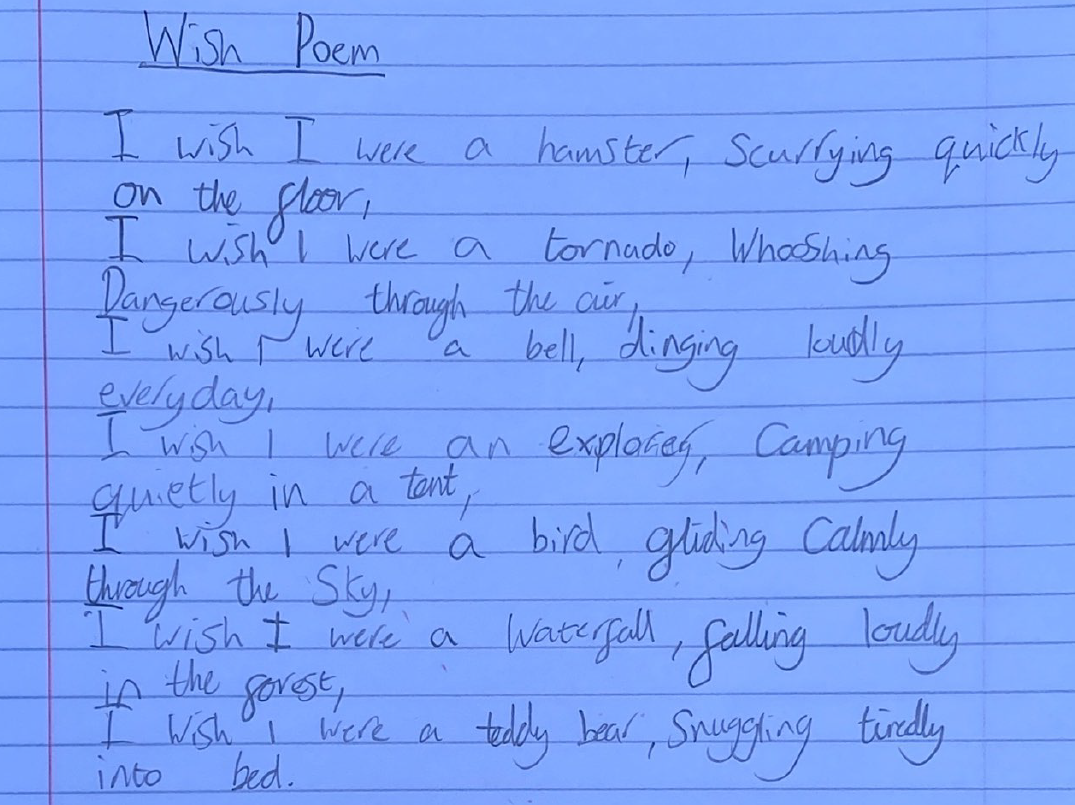 Wish Poem
I wish I were a hamster, Scurrying quickly
on the floor,
I wish I were a tornado, Whooshing
Dangerously through the air,
I wish I were a bell, dinging loudly
everyday,
I wish I were an explorer, Camping
quietly in a tent,
I wish I were a bird, gliding Calmly
through the Sky,
I wish I were a Waterfall, falling loudly
in the forest,
I Wish I were a teddy bear, Snuggling tiredly
into bed.